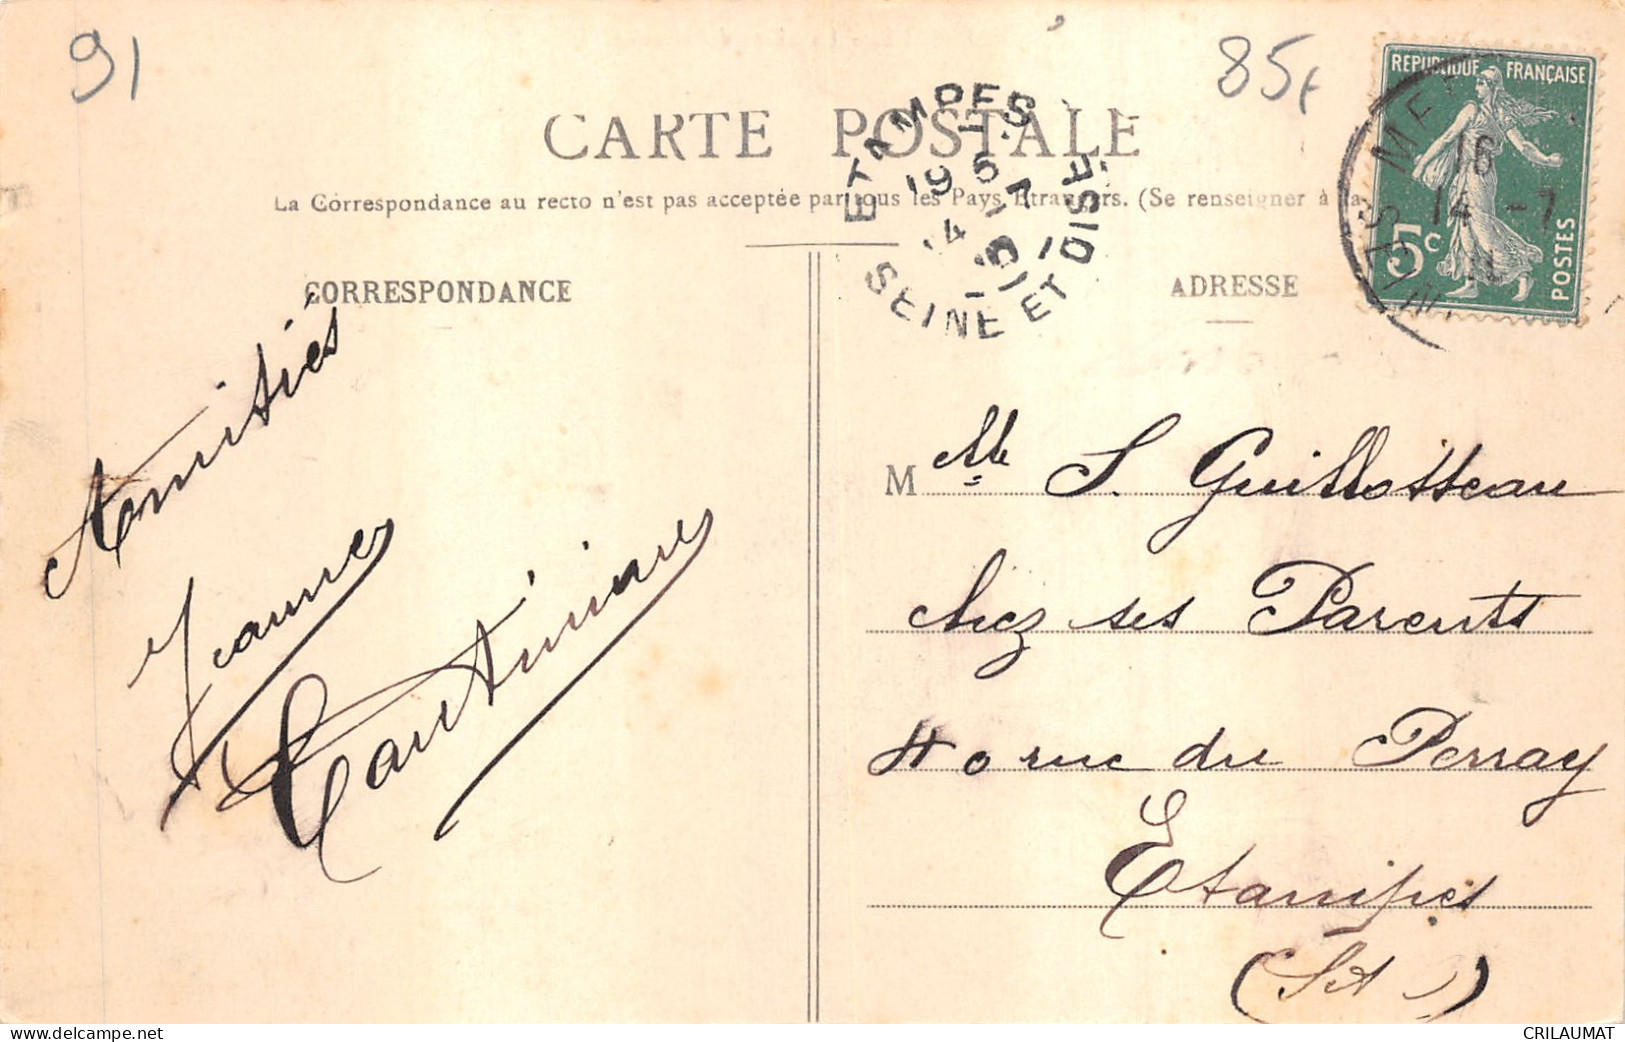 91
85f
CARTE POSTALE
La Correspondance au recto n'est pas acceptée par tous les Pays Etrangers. (Se renseigner à la
CORRESPONDANCE
ADRESSE
REPUBLIQUE FRANÇAISE
5c
POSTES
16
14 -7
ETAMPES
SEINE ET OISE
Amitiés
Jeanne
M Mlle S. Guillotteau
chez ses Parents
rue du Perray
Etampes
(S et O)
www.delcampe.net
CRILAUMAT